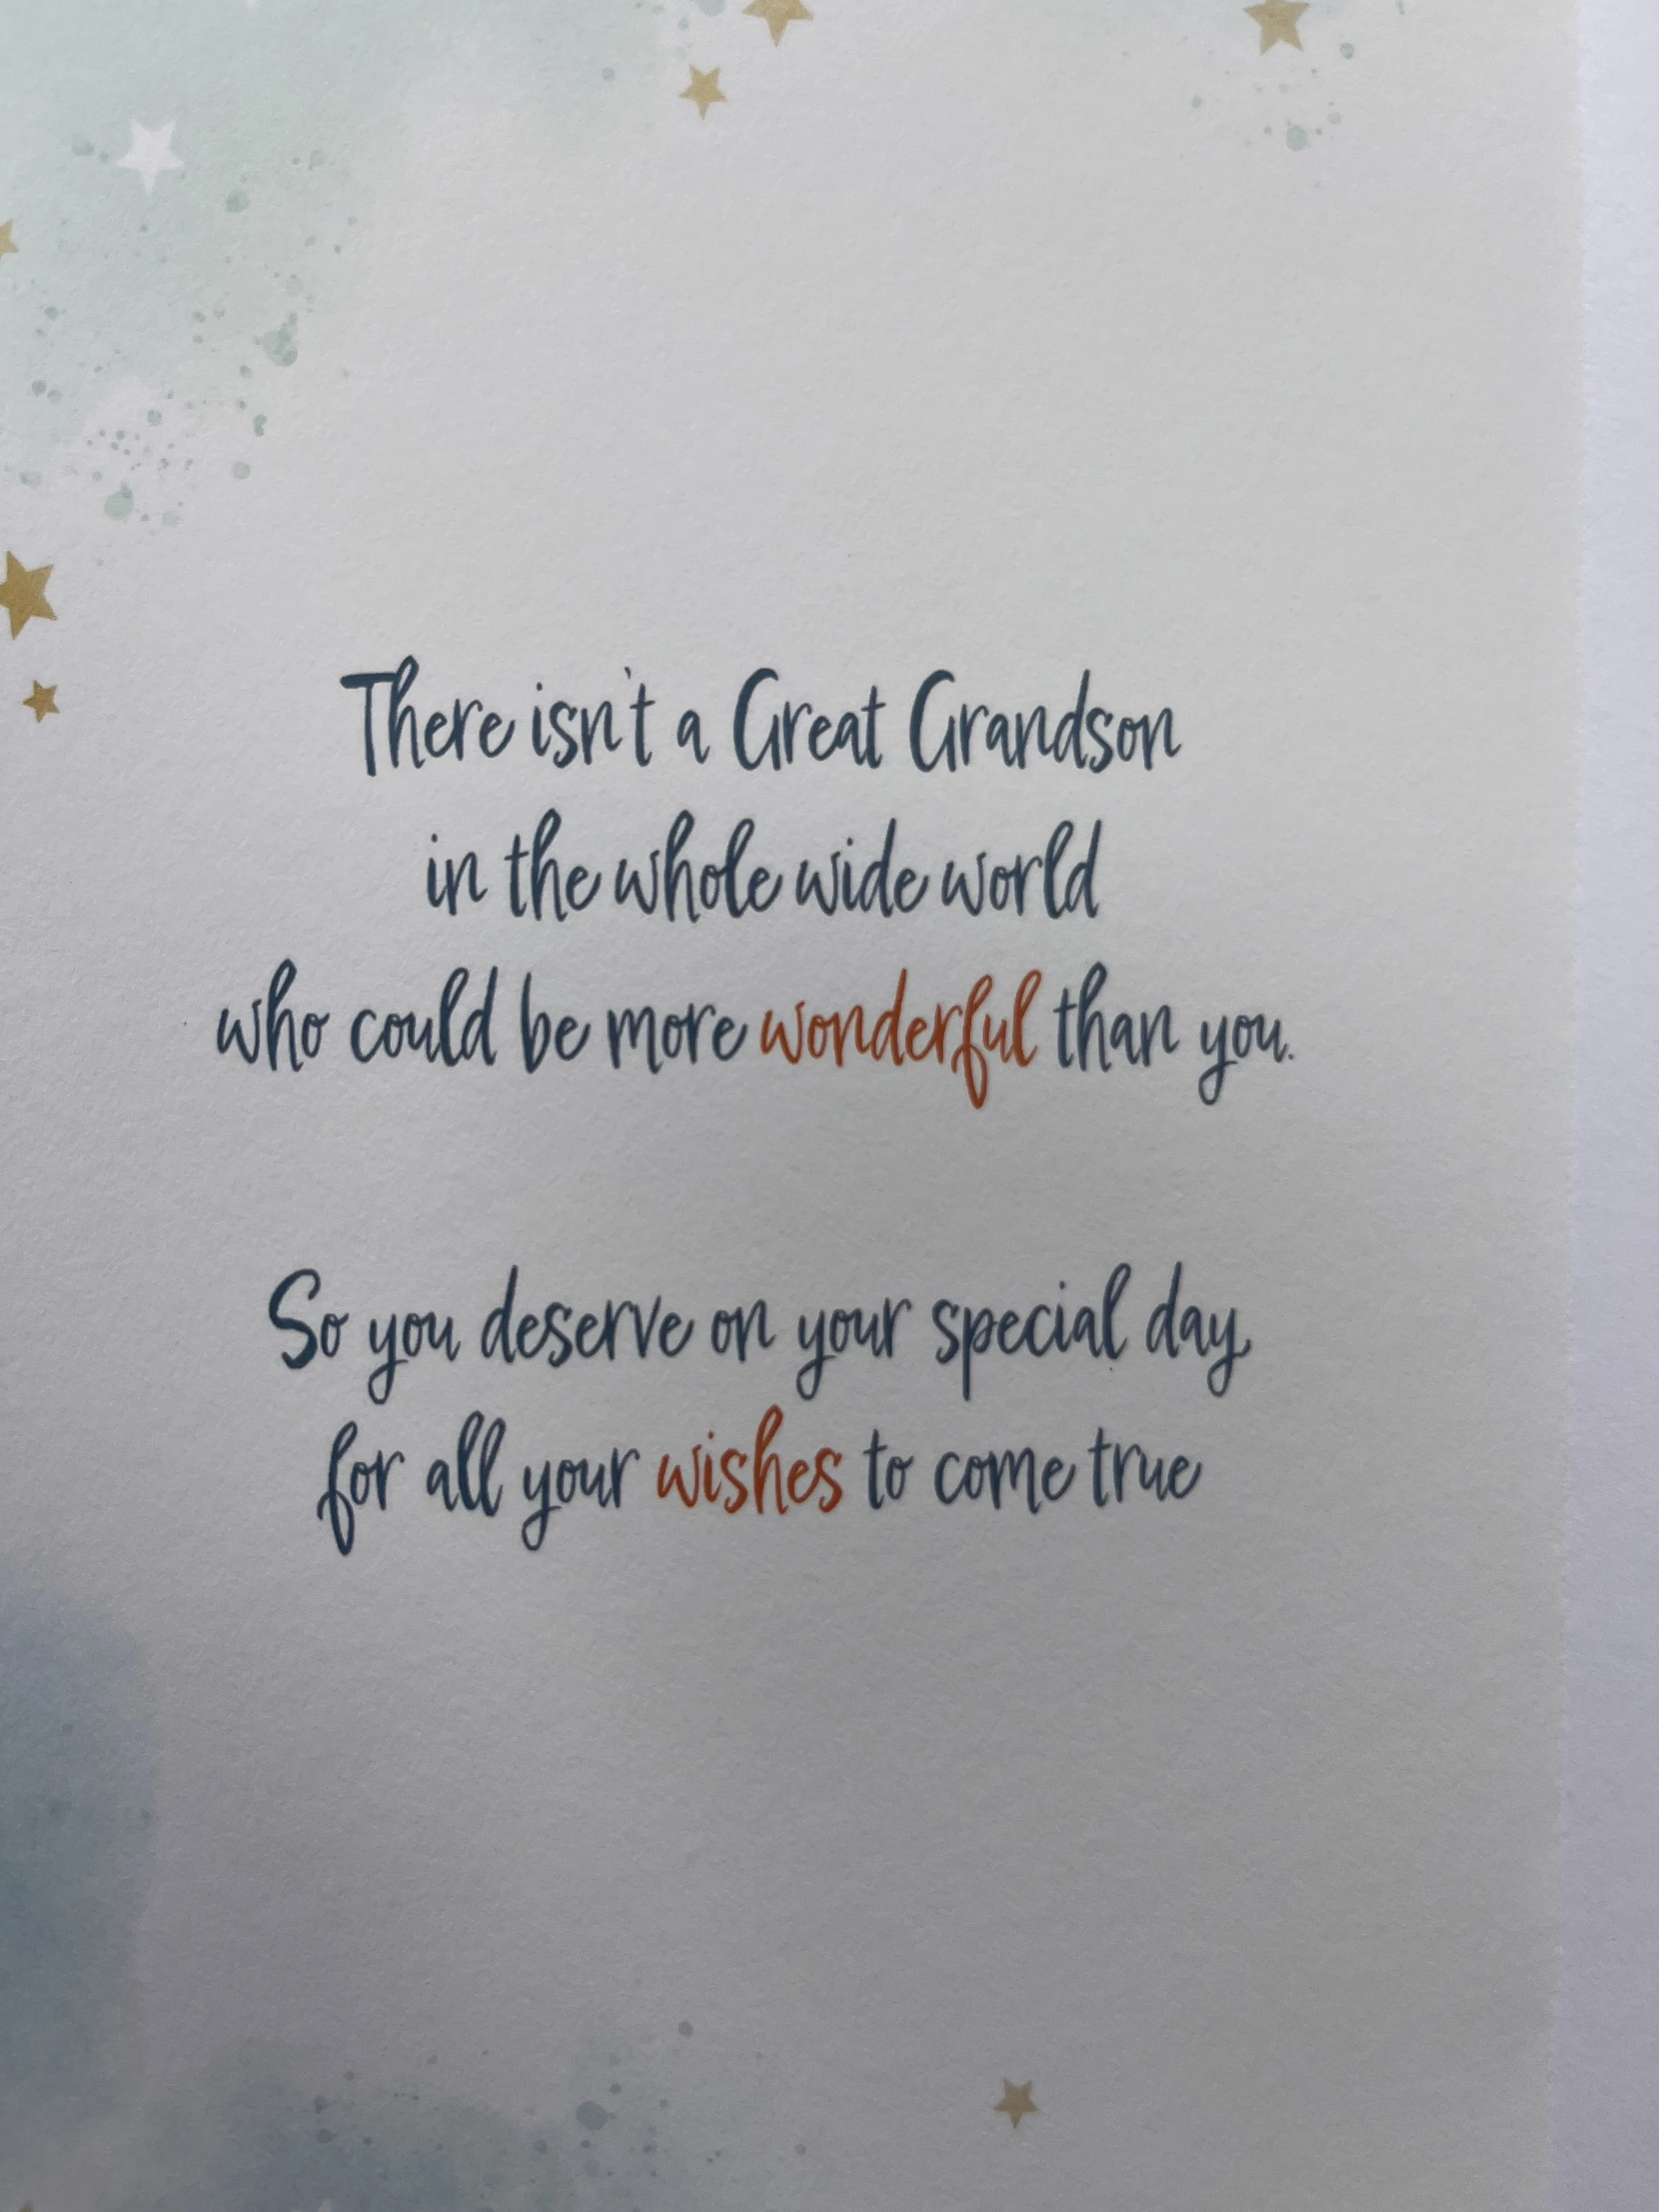 There isn't a Great Grandson
in the whole wide world
who could be more wonderful than you.
So you deserve on your special day,
for all your wishes to come true